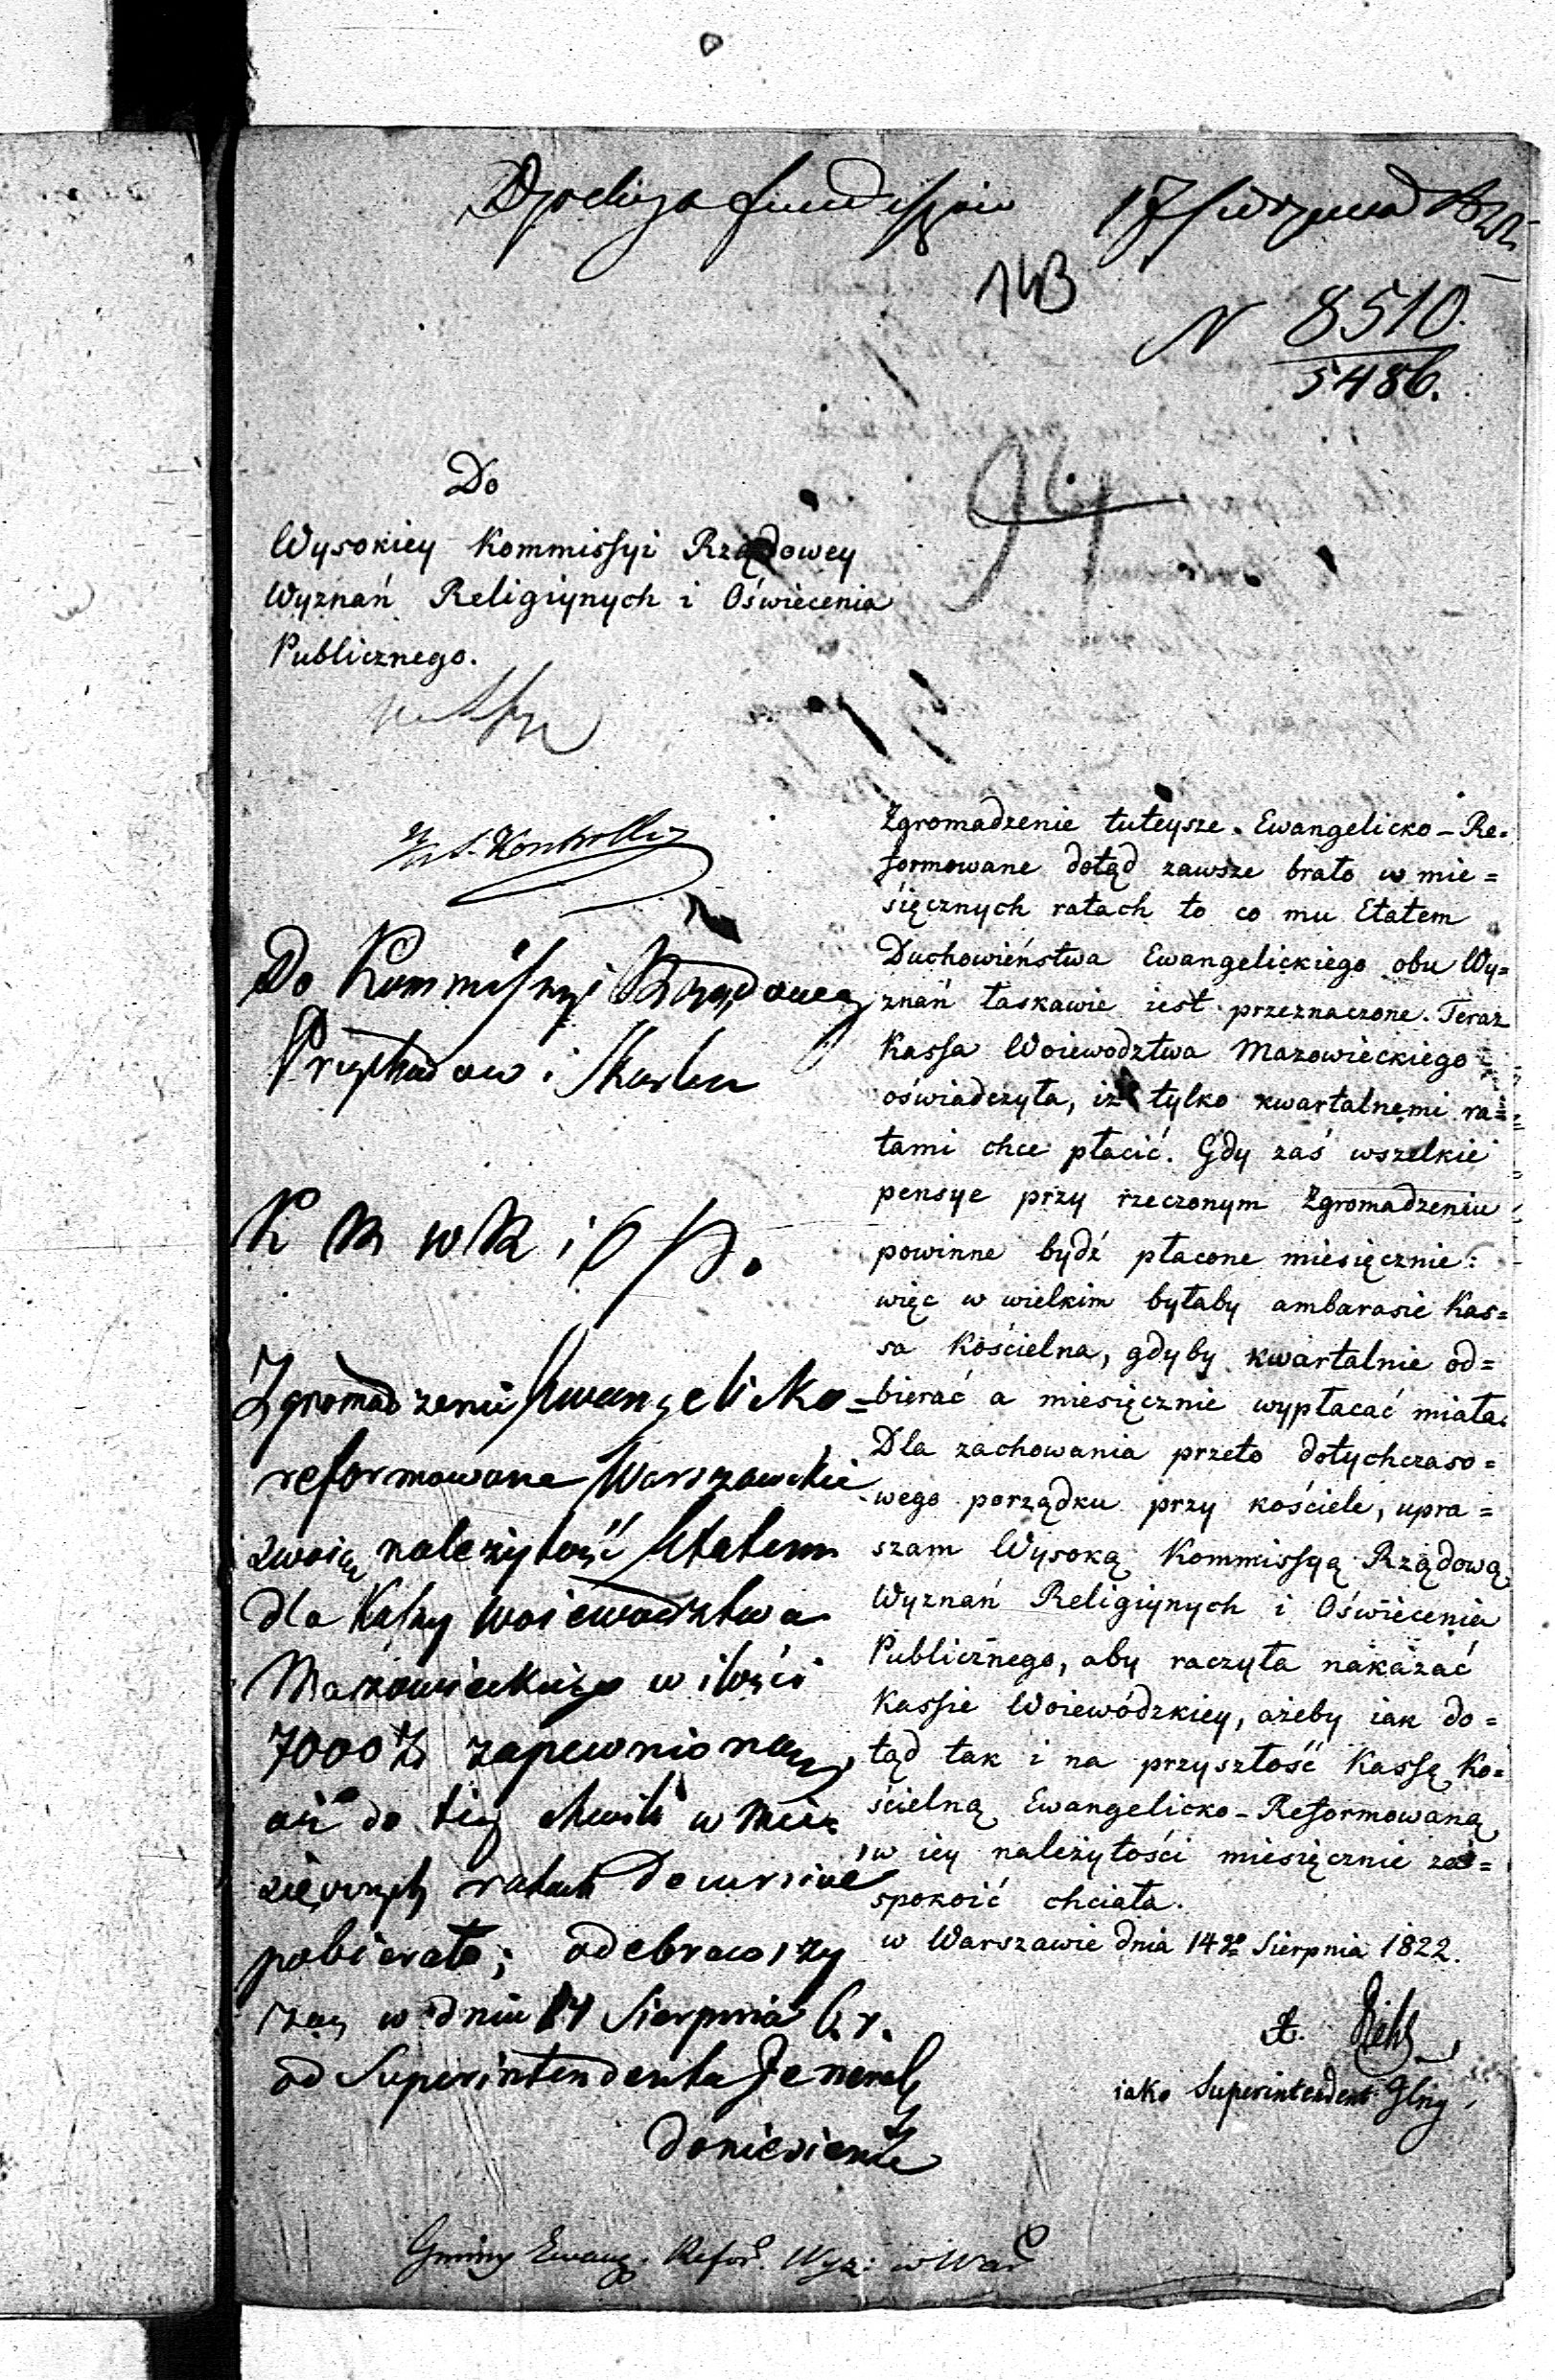 17 Sierpnia 1822
143
N 8510.
5486.
Do
Wysokiey Kommissyi Rządowey
Wyznań Religiynych i Oświecenia
Publicznego.
Zgromadzenie tuteysze Ewangelicko-Re=
formowane dotąd zawsze brało w mie=
sięcznych ratach to co mu Etatem
Duchowieństwa Ewangelickiego obu Wy=
znań łaskawie iest przeznaczone. Teraz
Kassa Woiewodztwa Mazowieckiego
oświadczyła, iż tylko kwartalnemi ra=
tami chce płacić. Gdy zaś wszelkie
pensye przy rzeczonym Zgromadzeniu
powinne bydź płacone miesięcznie:
więc w wielkim byłaby ambarasie Kas=
sa Kościelna, gdyby kwartalnie od=
bierać a miesięcznie wypłacać miała.
Dla zachowania przeto dotychczaso=
wego porządku przy kościele, upra=
szam Wysoką Kommissyą Rządową
Wyznań Religiynych i Oświecenia
Publicznego, aby raczyła nakazać
Kassie Woiewódzkiey, ażeby iak do=
tąd tak i na przyszłość Kassę Ko=
ścielną Ewangelicko-Reformowaną
w iey należytości miesięcznie za=
spokoić chciała.
w Warszawie dnia 14go Sierpnia 1822.
iako Superintendent Glny
Do Kommissyi Rządowey
Przychodow i Skarbu
K R W R i O P.
Zgromadzenie Ewangelicko=
reformowane Warszawskie
swoią należytość Etatem
dla Kassy Woiewodztwa
Mazowieckiego w ilości
7000 zł zapewnioną,
aż do tey chwili w mie=
sięcznych ratach decursive
pobierało; odebrawszy
zaś w dniu 14 Sierpnia b. r.
od Superintendenta Jeneralg
doniesienie
Gminy Ewang. Refor. Wyz: w War